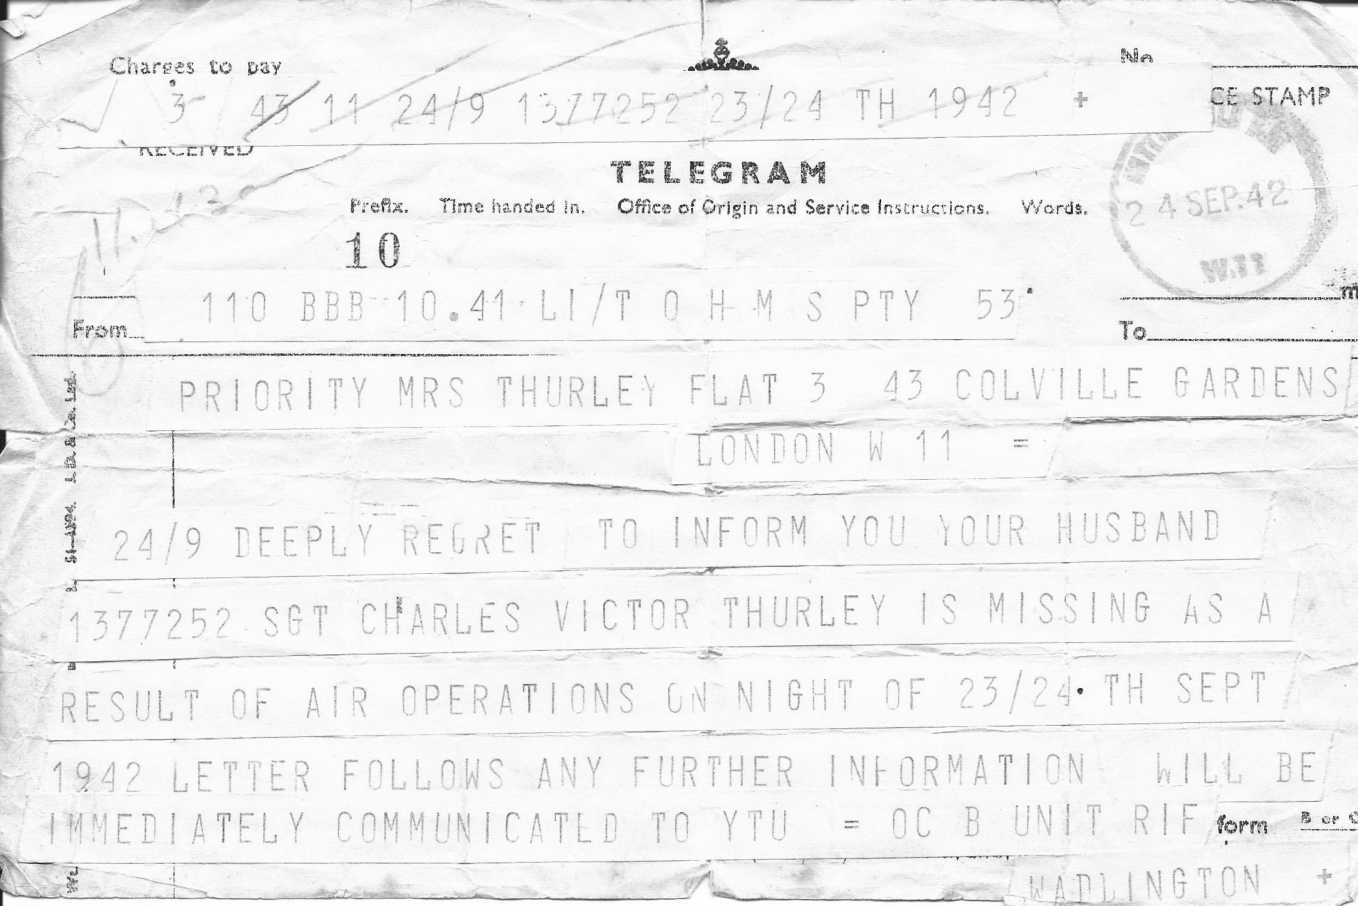 Charges to pay
No
3 43 11 24/9 1377252 23/24 TH 1942 +
CE STAMP
RECEIVED
TELEGRAM
Prefix. Time handed in. Office of Origin and Service Instructions. Words.
24 SEP.42
W.11
10
110 BBB 10.41 LI/T O H M S PTY 53
m
From
To
PRIORITY MRS THURLEY FLAT 3 43 COLVILLE GARDENS
LONDON W 11 =
24/9 DEEPLY REGRET TO INFORM YOU YOUR HUSBAND
1377252 SGT CHARLES VICTOR THURLEY IS MISSING AS A
RESULT OF AIR OPERATIONS ON NIGHT OF 23/24 TH SEPT
1942 LETTER FOLLOWS ANY FURTHER INFORMATION WILL BE
IMMEDIATELY COMMUNICATED TO YTU = OC B UNIT RIF
form B or C
WADLINGTON +